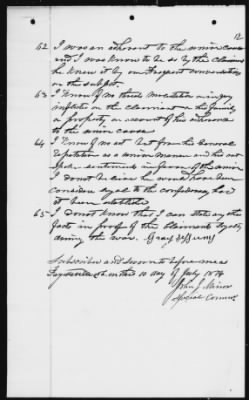 12
62 I was an adherent to the union cause
and I was known to be so by the claimant
he knew it by our frequent conversations
on the subject.
63 I know of no threats molestation or injury
inflicted on the claimant or his family
or property, on account of his adherence
to the union cause
64 I know of no act but from his general
reputation as a union man and his
sentiments in favor of the union
I do not believe he would have been
considered loyal to the confederacy had
it been established
65 I do not know that I can state any other
facts in proof of the claimants loyalty
during the war.
Subscribed and sworn to before me a
10 day of July 1874
John J. Minor
Special Commr